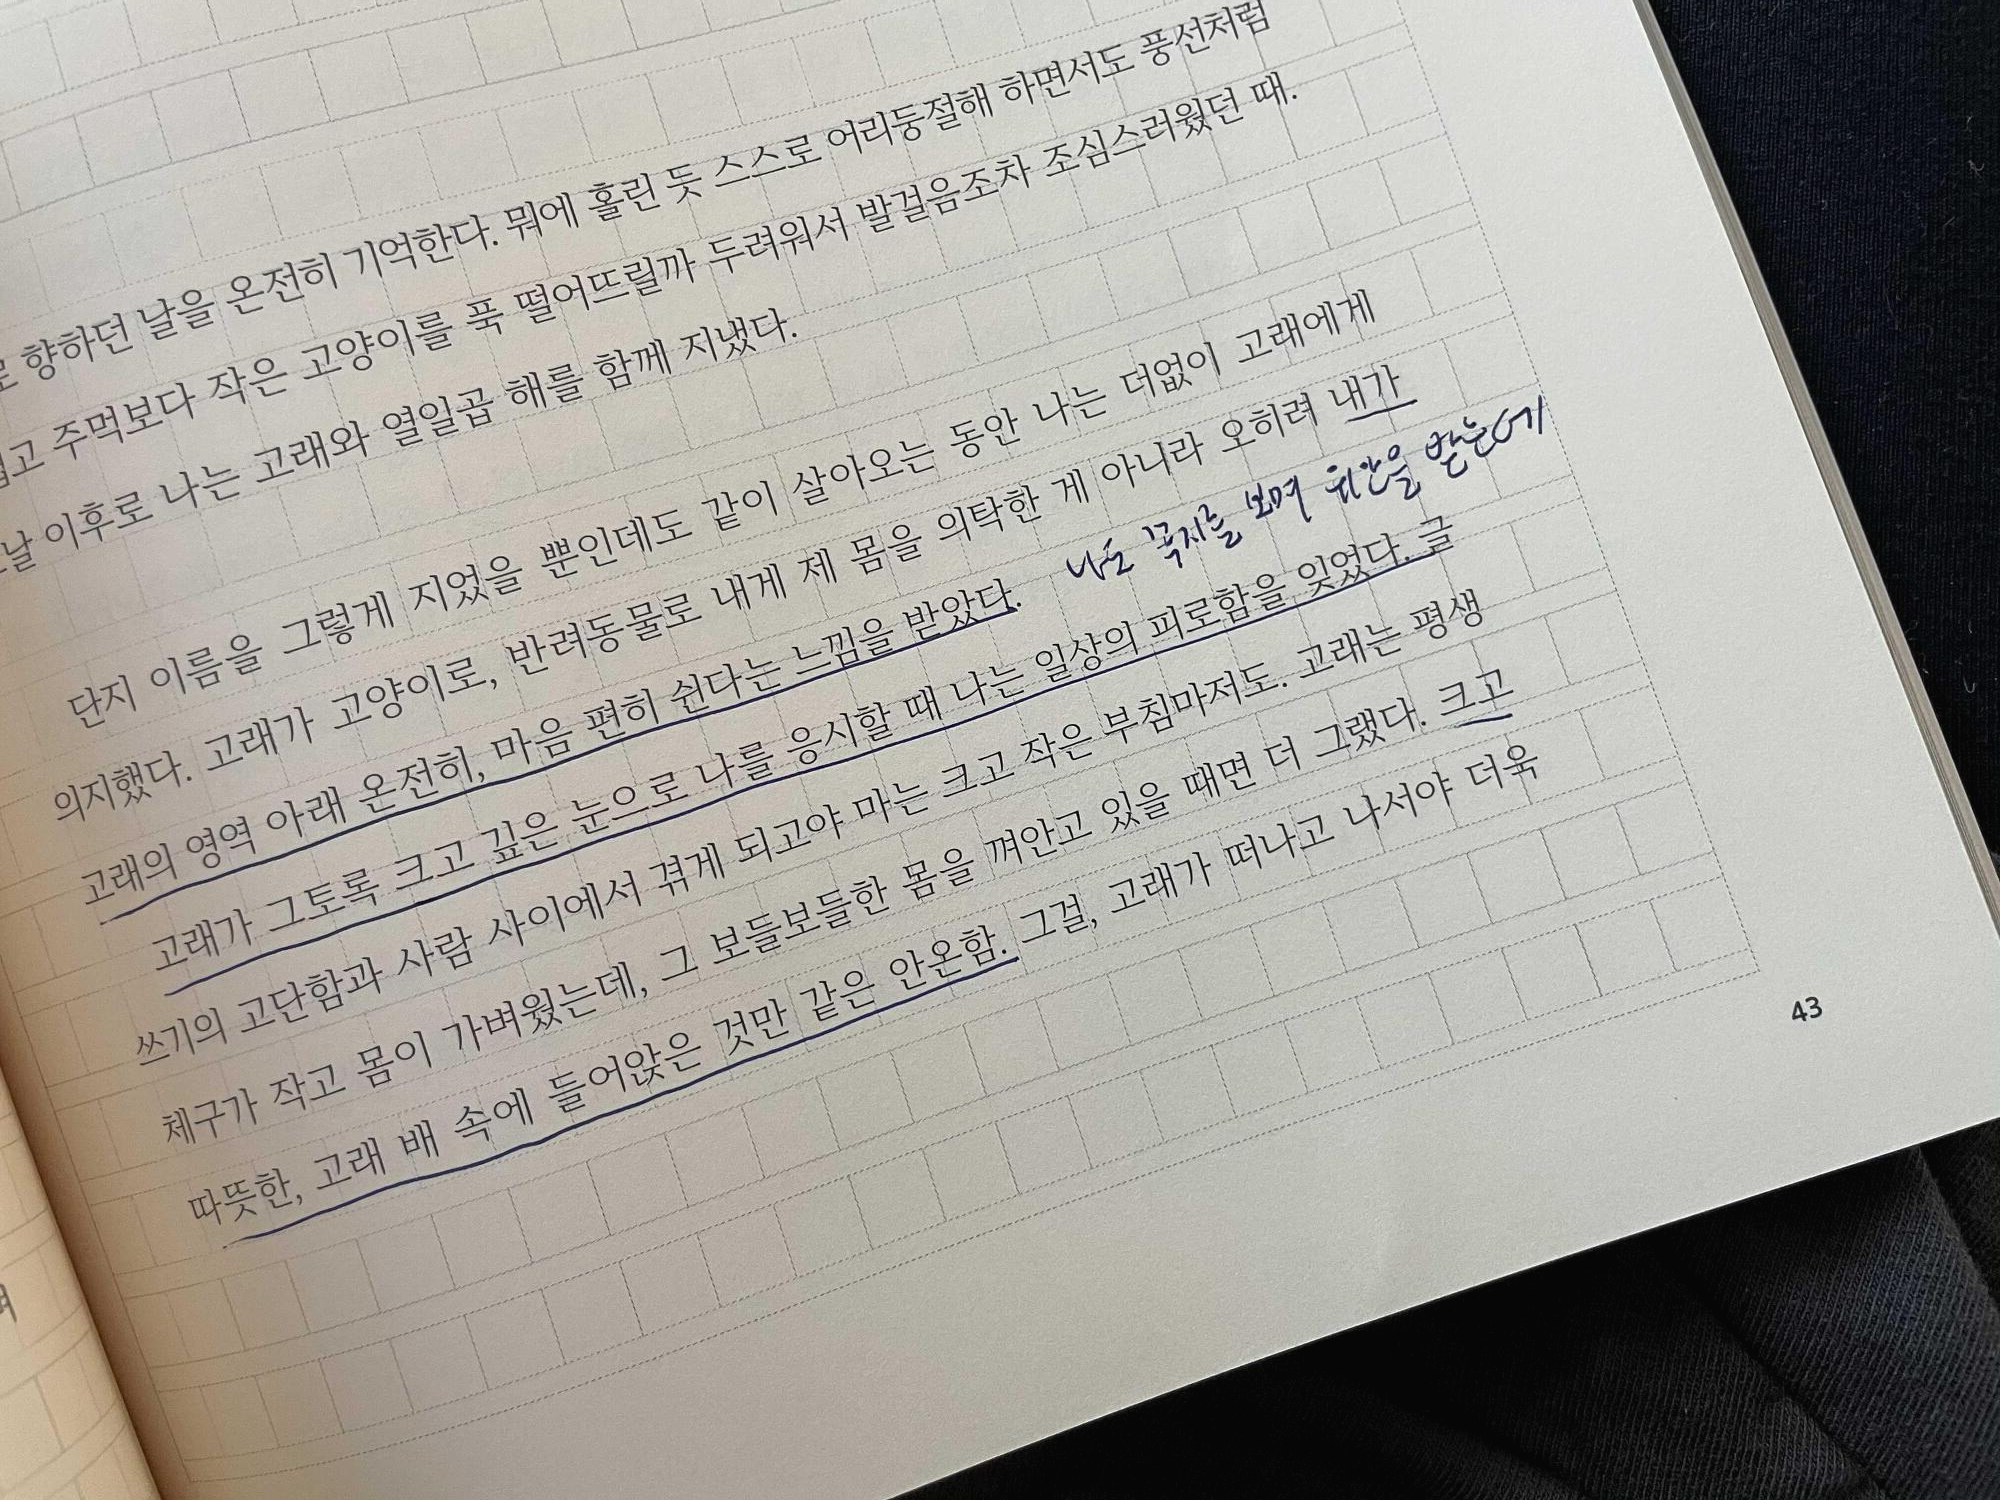 향하던 날을 온전히 기억한다. 뭐에 홀린 듯 스스로 어리둥절해 하면서도 풍선처럼
주먹보다 작은 고양이를 푹 떨어뜨릴까 두려워서 발걸음조차 조심스러웠던 때.
이후로 나는 고래와 열일곱 해를 함께 지냈다.
단지 이름을 그렇게 지었을 뿐인데도 같이 살아오는 동안 나는 더없이 고래에게
의지했다. 고래가 고양이로, 반려동물로 내게 제 몸을 의탁한 게 아니라 오히려 내가
고래의 영역 아래 온전히, 마음 편히 쉰다는 느낌을 받았다.
나도 꼭지를 보며 위안을 받는데
고래가 그토록 크고 깊은 눈으로 나를 응시할 때 나는 일상의 피로함을 잊었다. 글
쓰기의 고단함과 사람 사이에서 겪게 되고야 마는 크고 작은 부침마저도. 고래는 평생
체구가 작고 몸이 가벼웠는데, 그 보들보들한 몸을 껴안고 있을 때면 더 그랬다. 크고
따뜻한, 고래 배 속에 들어앉은 것만 같은 안온함. 그걸, 고래가 떠나고 나서야 더욱
43